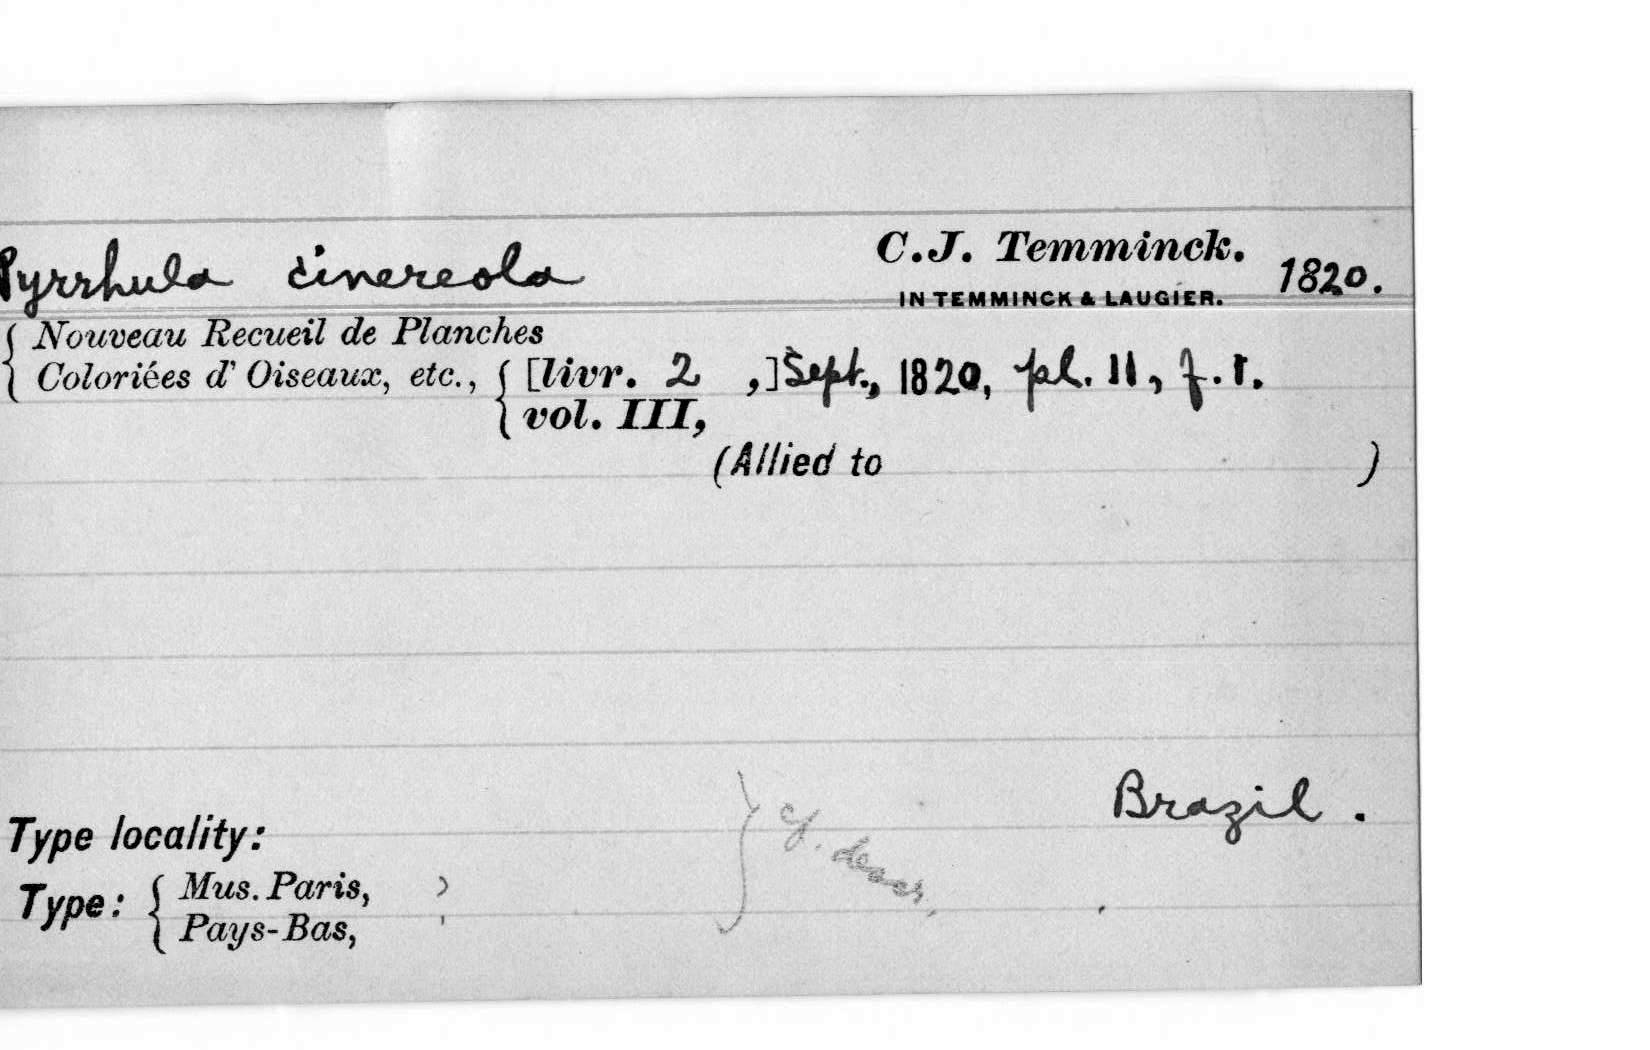 Pyrrhula cinereola C.J. Temminck. 1820.
IN TEMMINCK & LAUGIER.
Nouveau Recueil de Planches
Coloriées d' Oiseaux, etc., [livr. 2 ,] Sept., 1820, pl. 11, f. 1.
vol. III,
(Allied to )
Brazil.
Type locality:
Type: Mus. Paris, ?
Pays-Bas,
Cf. descr.